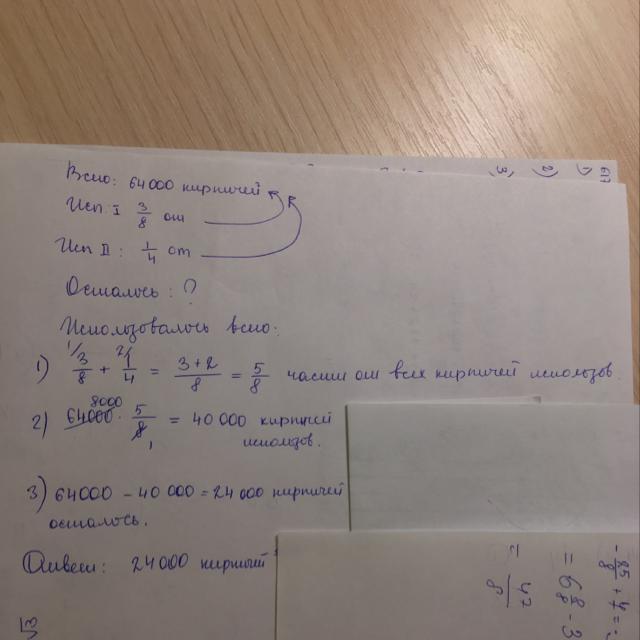 Всего: 64000 кирпичей
Исп. I 3/8 от
Исп II: 1/4 от
Осталось: ?
Использовалось всего:
1) 3/8 + 1/4 = 3+2/8 = 5/8 части от всех кирпичей использов.
8000
2) 64000 · 5/8 = 40 000 кирпичей
использов.
3) 64000 - 40 000 = 24 000 кирпичей
осталось.
Ответ: 24 000 кирпичей
617
1)
2)
3)
-25/8 + 4 =
= 6 8/8 - 3
= 47/8